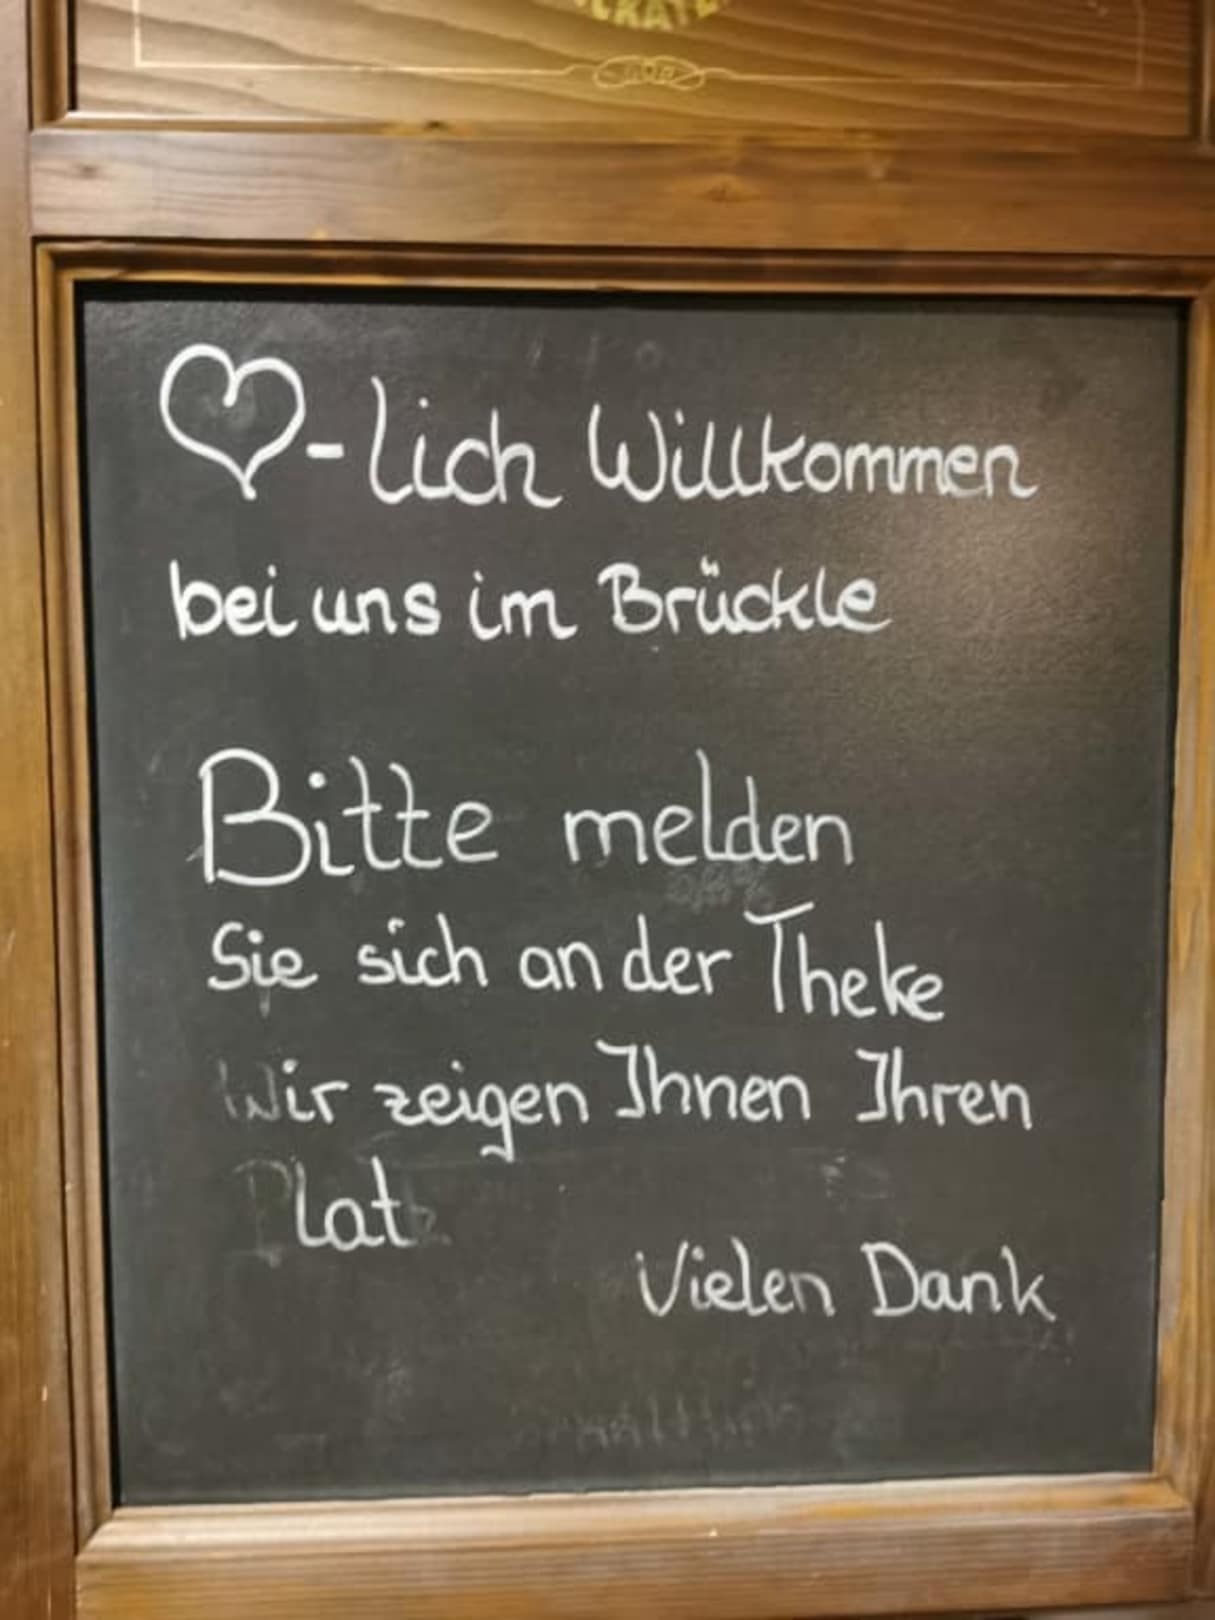 ♡-lich Willkommen
bei uns im Brückle
Bitte melden
Sie sich an der Theke
Wir zeigen Ihnen Ihren
Platz
Vielen Dank